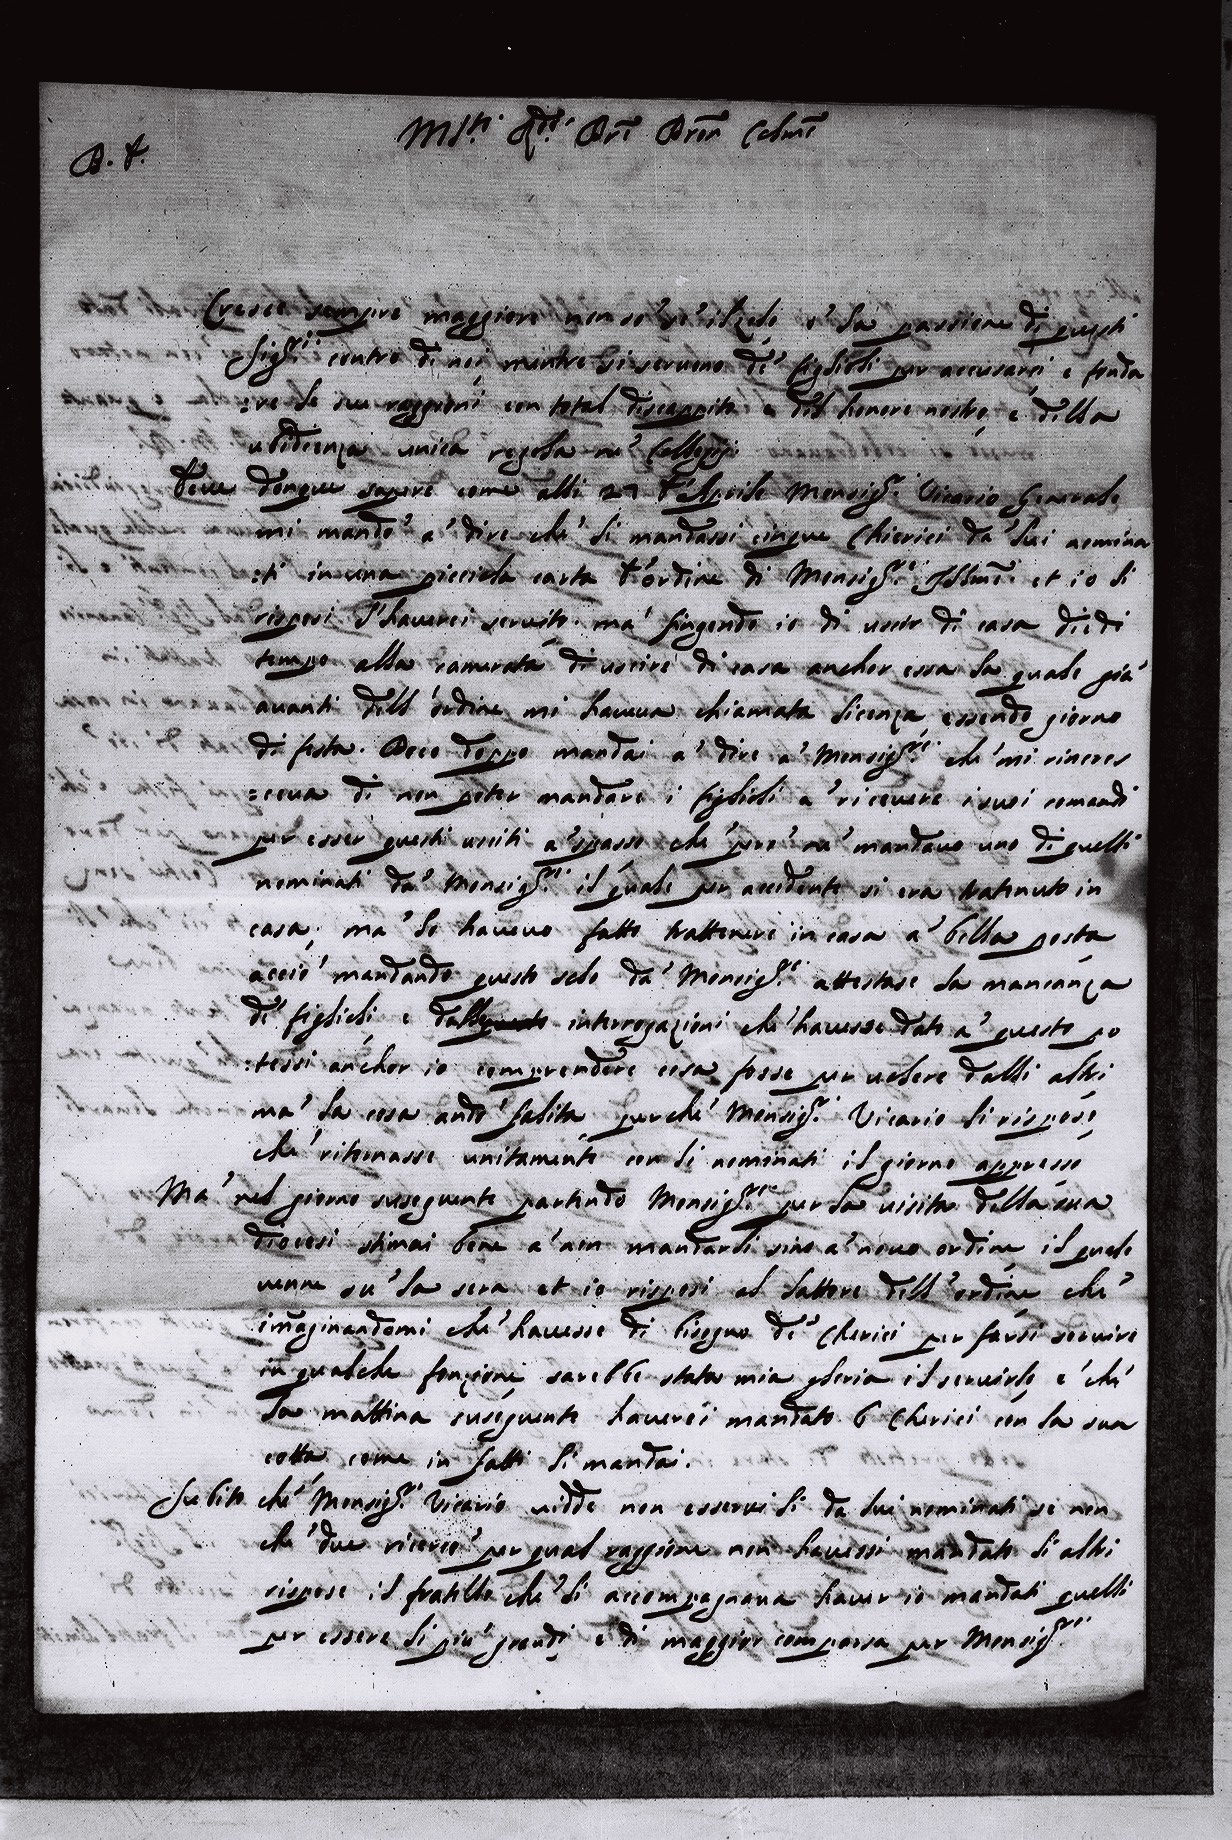 M.to R.do P.re P.ron Col.mo
B. D.
Cresce sempre maggiore non so' se' il zelo o' la passione di questi
Sig.ri contro di noi mentre si servono de' figlioli per accusarci e fonda
:re le sue raggioni con total discappito e del honore nostro, e della
ubidienza unica regola ne' Collegij
Deve donque sapere come alli 27 d'Aprile Monsig.re Vicario Generale
mi mando' a' dire che' li mandassi cinque Chierici da' lui nomina
:ti in una picciola carta d'ordine di Monsig.re Ill.mo et io li
risposi l'haverei servito. ma' fingendo io di uscir di casa diedi
tempo alla camerata di uscire di casa anchor essa la quale già
avanti dell'ordine mi haveva chiamata licenza essendo giorno
di festa. Poco doppo mandai a' dire a' Monsig.re che' mi rincres
:ceva di non poter mandare i figlioli a' ricevere i suoi comandi
per esser questi usciti a' spasso che' però ne' mandavo uno di quelli
nominati da' Monsig.re il quale per accidente si era tratenuto in
casa, ma' lo havevo fatto trattenere in casa a' bella posta
acciò mandando questo solo da' Monsig.re attestasse la mancanza
de' figlioli, e dalle interrogazioni che' havesse dato a' questo po
:tessi anchor io comprendere cosa fosse per volere dalli altri
ma' la cosa andò falita perche' Monsig.re Vicario li rispose
che' ritornasse unitamente con li nominati il giorno appresso
Ma' nel giorno susequente partendo Monsig.re per la visita della sua
diocesi stimai bene a' non mandarli sino a' novo ordine il quale
venne su' la sera et io risposi al lattore dell'ordine che'
imaginandomi che' havesse di bisogno de' Chierici per farsi servire
in qualche fonzione sarebbe stata mia gloria il servirlo e' che'
la mattina susequente haverei mandato 6 Chierici con la sua
cotta come in fatti li mandai.
Subito che' Monsig.re Vicario vidde non esservi li da lui nominati se non
che' due ricercò per qual raggione non havessi mandato li altri
rispose il fratello che' li accompagnava haver io mandati quelli
per essere li più grandi e di maggior comparsa per Monsig.re